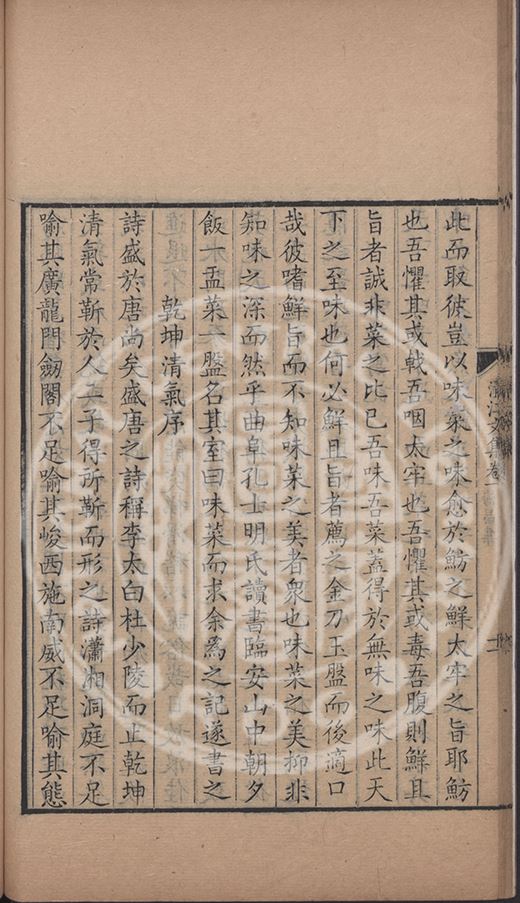 此而取彼豈以味菜之味愈於魴之鮮太牢之旨耶魴
也吾懼其或戟吾咽太牢也吾懼其或毒吾腹則鮮且
旨者誠非菜之比已吾味吾菜蓋得於無味之味此天
下之至味也何必鮮且旨者薦之金刀玉盤而後適口
哉彼嗜鮮旨而不知味菜之美者衆也味菜之美抑非
知味之深而然乎曲阜孔士明氏讀書臨安山中朝夕
飯一盂菜一盤名其室曰味菜而求余為之記遂書之
乾坤清氣序
詩盛於唐尚矣盛唐之詩稱李太白杜少陵而止乾坤
清氣常靳於人二子得所靳而形之詩瀟湘洞庭不足
喻其廣龍門劒閣不足喻其峻西施南威不足喻其態
清江文集卷一